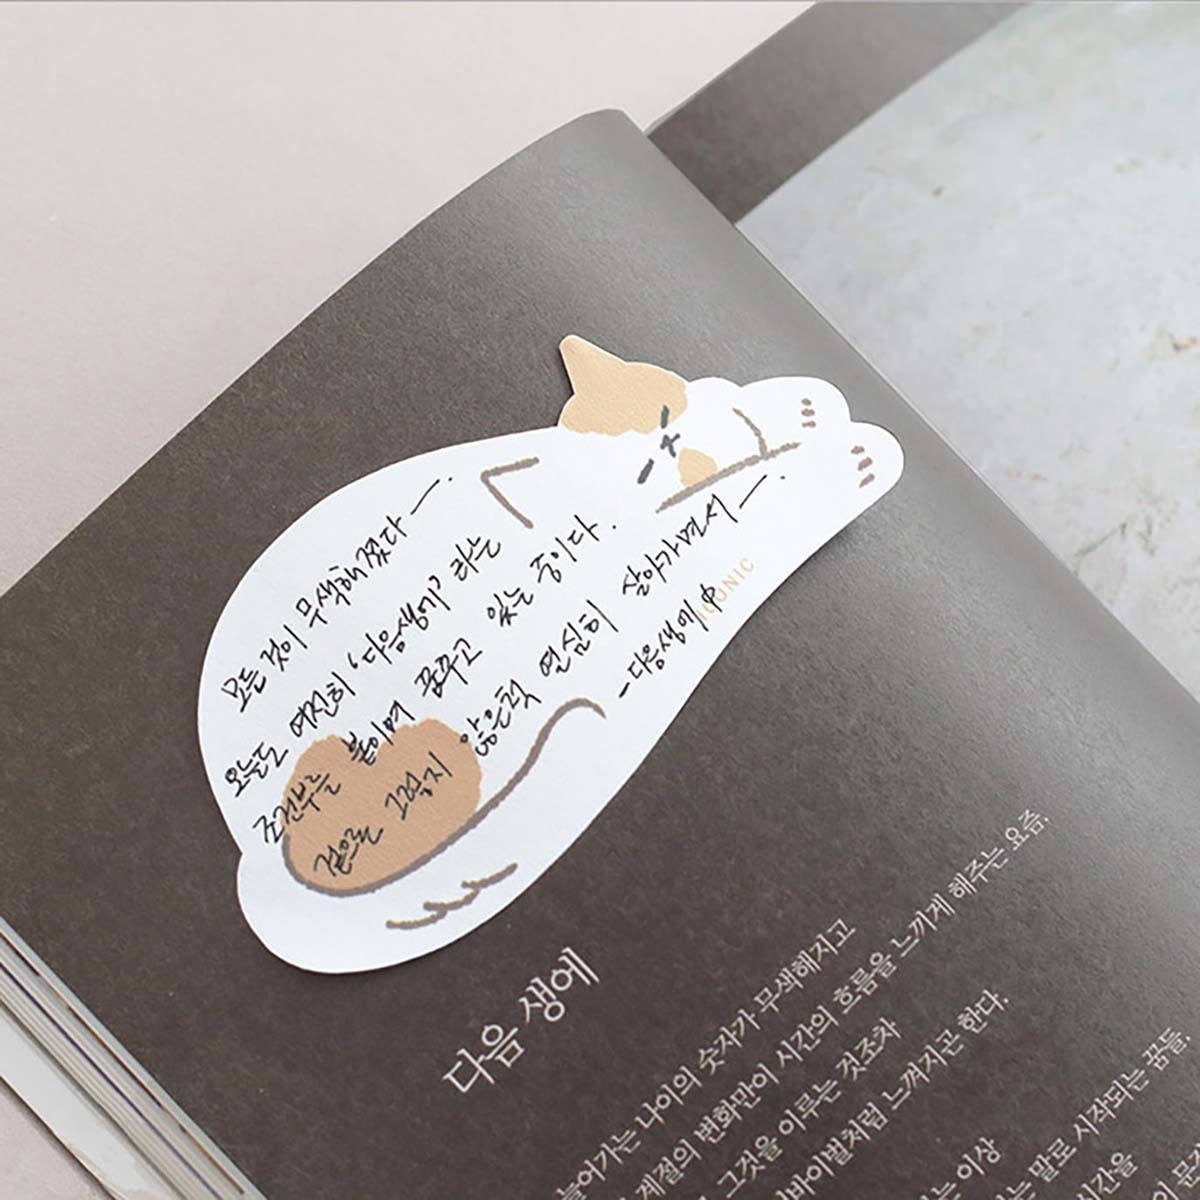 모든 것이 무색해졌다—.
오늘도 여전히 '다음생에' 라는
조건부를 붙이며 꿈꾸고 있는 중이다.
겉으론 그렇지 않은척 열심히 살아가면서—.
-다음생에 中
ICONIC
다음 생에
늘어가는 나이의 숫자가 무색해지고
계절의 변화만이 시간의 흐름을 느끼게 해주는 요즘.
그것을 이루는 것조차
바이벌처럼 느껴지곤 한다.
는 이상
는 말로 시작되는 꿈들.
시간을
이 무색